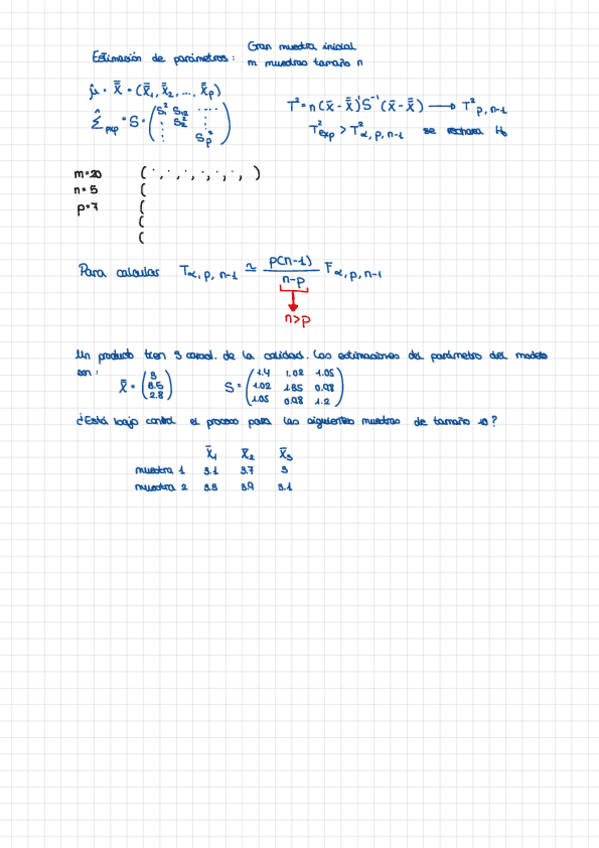 Gran muestra inicial
Estimación de parámetros: m muestras tamaño n
μ̂ = X̿ = (X̿₁, X̿₂, ..., X̿p)
Σ̂pxp = S = (S₁² S₁₂ .... ⋮ S₂² ⋮ ⋮ Sp²)
T² = n(x̄ - x̿)' S⁻¹ (x̄ - x̿) → T²p, n-1
T²exp > T²α, p, n-1 se rechaza H₀
m=20 ( ·, ·, ·, ·, ·, ·, )
n=5 (
p=7 (
(
(
Para calcular Tα, p, n-1 ≃ p(n-1) / n-p Fα, p, n-1
n>p
Un producto tien 3 caract. de la calidad. Las estimaciones del parámetro del modelo
son: X̿ = (3 8.5 2.8) S = (1.4 1.02 1.05 1.02 1.85 0.98 1.05 0.98 1.2)
¿Está bajo control el proceso para las siguientes muestras de tamaño 10?
X̄₁ X̄₂ X̄₃
muestra 1 3.1 3.7 3
muestra 2 3.3 3.9 3.1